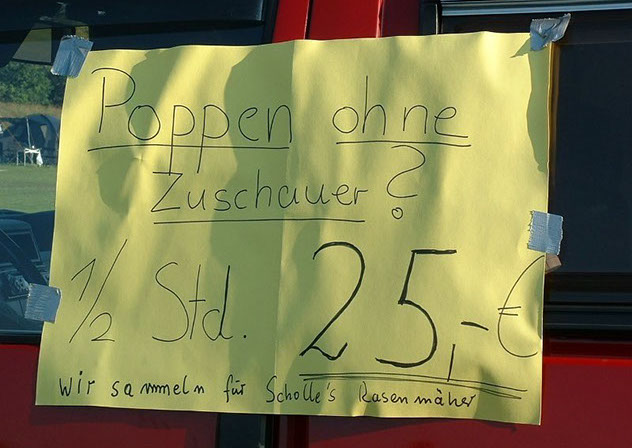 Poppen ohne
Zuschauer?
1/2 Std. 25,-€
Wir sammeln für Scholle's Rasenmäher